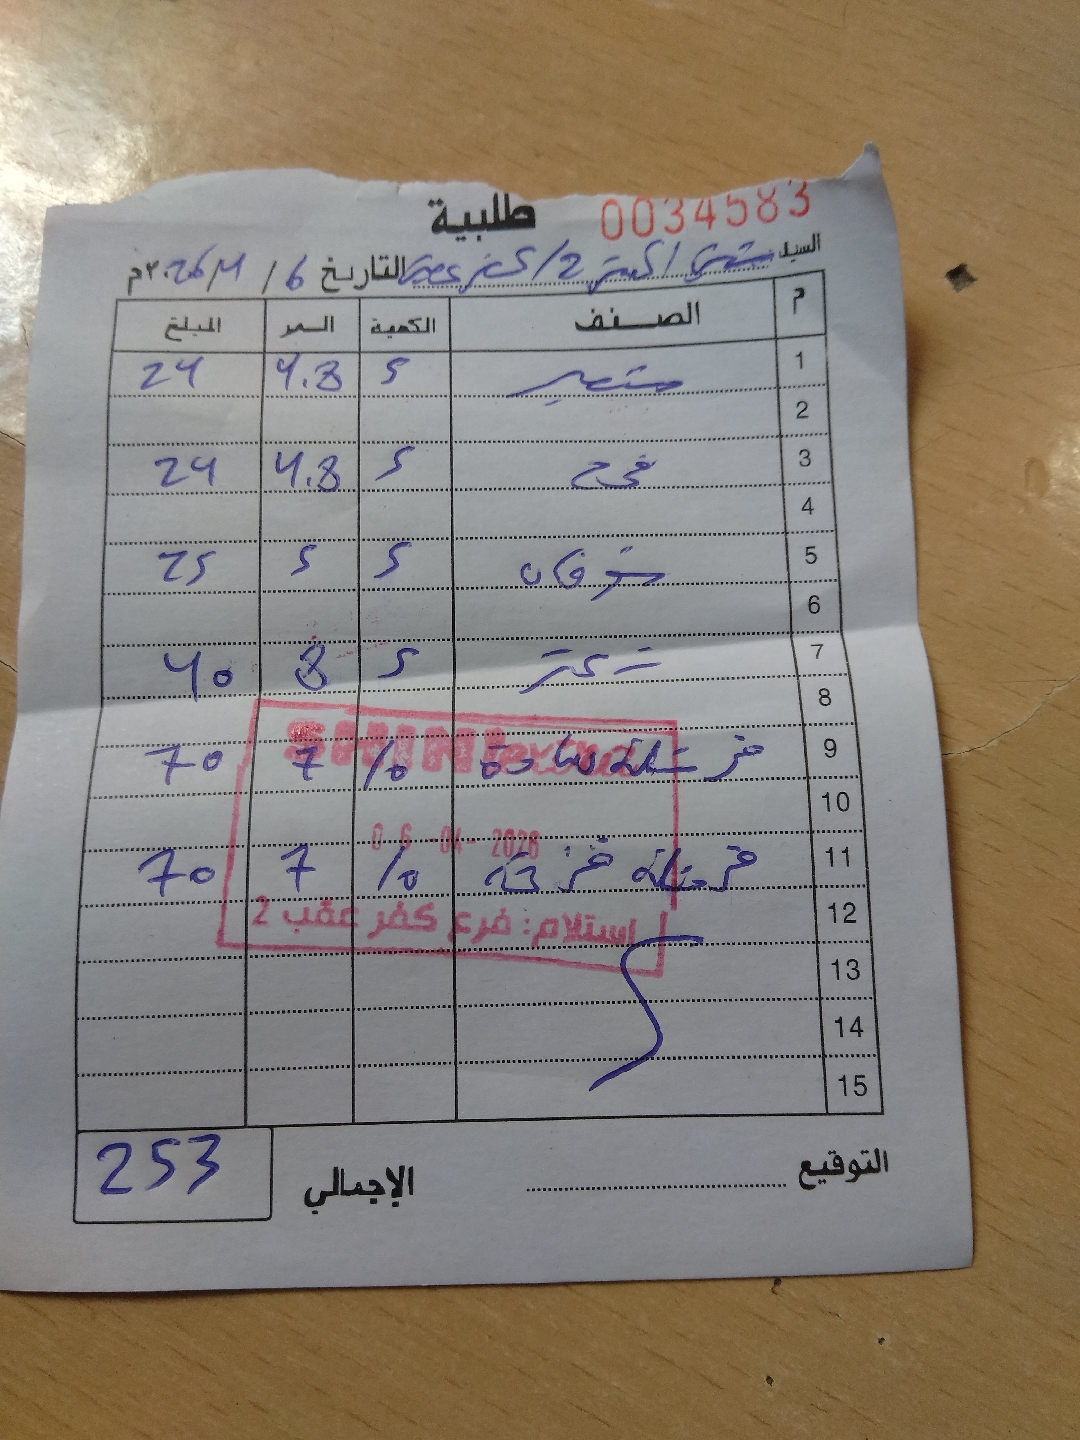 طلبية 0034583
السيد 2/ التاريخ 6 / 4/ 2026م
م الصنف الكمية السعر المبلغ
1 شعير 5 4.8 24
2
3 قمح 5 4.8 24
4
5 شوفان 5 5 25
6
7 5 8 40
8
SHINI
9 فرشلة سادة 10 7 70
10
06-04-2026
11 فرشلة 10 7 70
12
استلام: فرع كفر عقب 2
13
14
15
التوقيع
الإجمالي 253